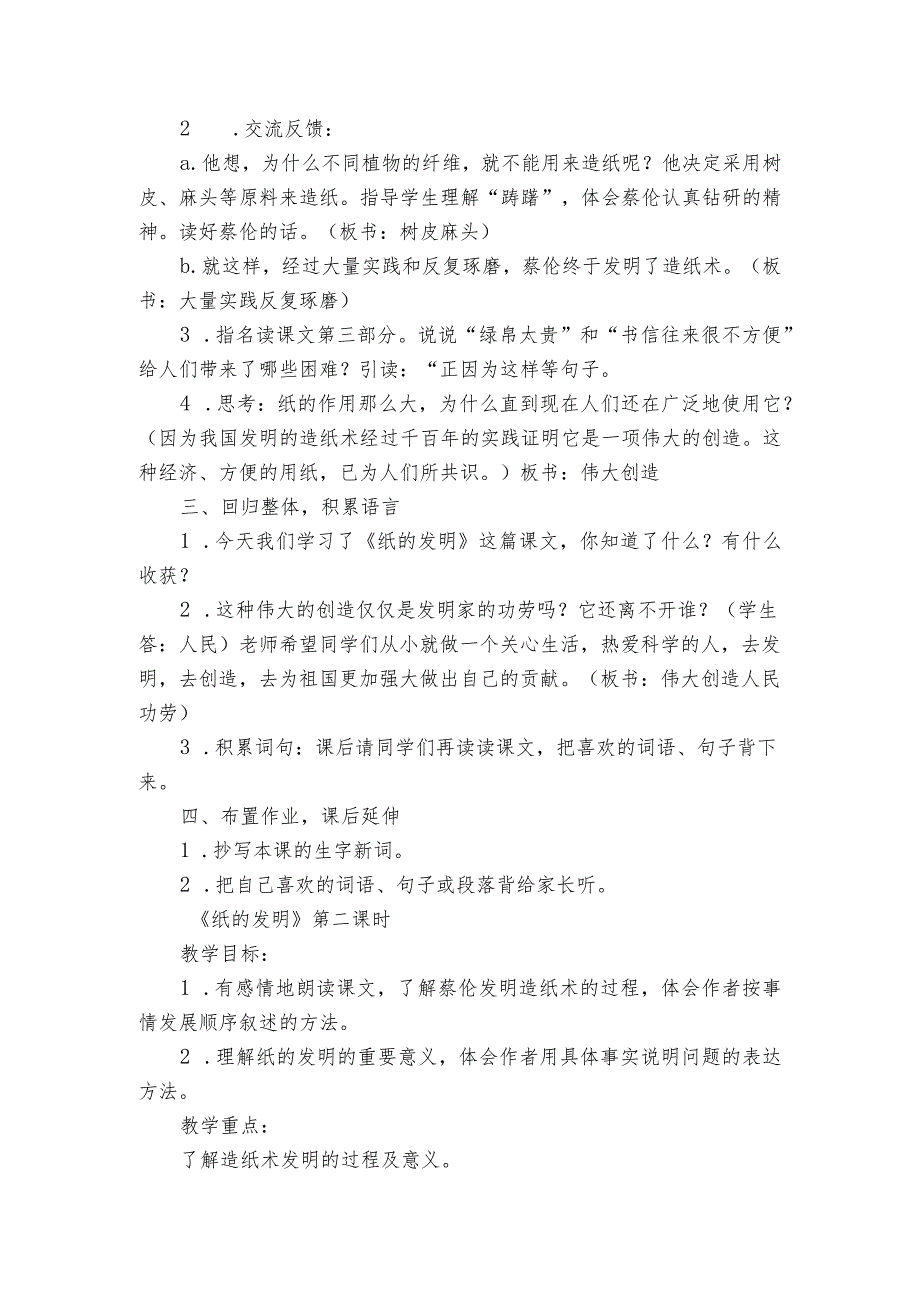 2 .交流反馈：
a.他想，为什么不同植物的纤维，就不能用来造纸呢？他决定采用树
皮、麻头等原料来造纸。指导学生理解“踌躇”，体会蔡伦认真钻研的精
神。读好蔡伦的话。（板书：树皮麻头）
b.就这样，经过大量实践和反复琢磨，蔡伦终于发明了造纸术。（板
书：大量实践反复琢磨）
3 .指名读课文第三部分。说说“绿帛太贵”和“书信往来很不方便”
给人们带来了哪些困难？引读：“正因为这样等句子。
4 .思考：纸的作用那么大，为什么直到现在人们还在广泛地使用它？
（因为我国发明的造纸术经过千百年的实践证明它是一项伟大的创造。这
种经济、方便的用纸，已为人们所共识。）板书：伟大创造
三、回归整体，积累语言
1 .今天我们学习了《纸的发明》这篇课文，你知道了什么？有什么
收获？
2 .这种伟大的创造仅仅是发明家的功劳吗？它还离不开谁？（学生
答：人民）老师希望同学们从小就做一个关心生活，热爱科学的人，去发
明，去创造，去为祖国更加强大做出自己的贡献。（板书：伟大创造人民
功劳）
3 .积累词句：课后请同学们再读读课文，把喜欢的词语、句子背下
来。
四、布置作业，课后延伸
1 .抄写本课的生字新词。
2 .把自己喜欢的词语、句子或段落背给家长听。
《纸的发明》第二课时
教学目标：
1 .有感情地朗读课文，了解蔡伦发明造纸术的过程，体会作者按事
情发展顺序叙述的方法。
2 .理解纸的发明的重要意义，体会作者用具体事实说明问题的表达
方法。
教学重点：
了解造纸术发明的过程及意义。